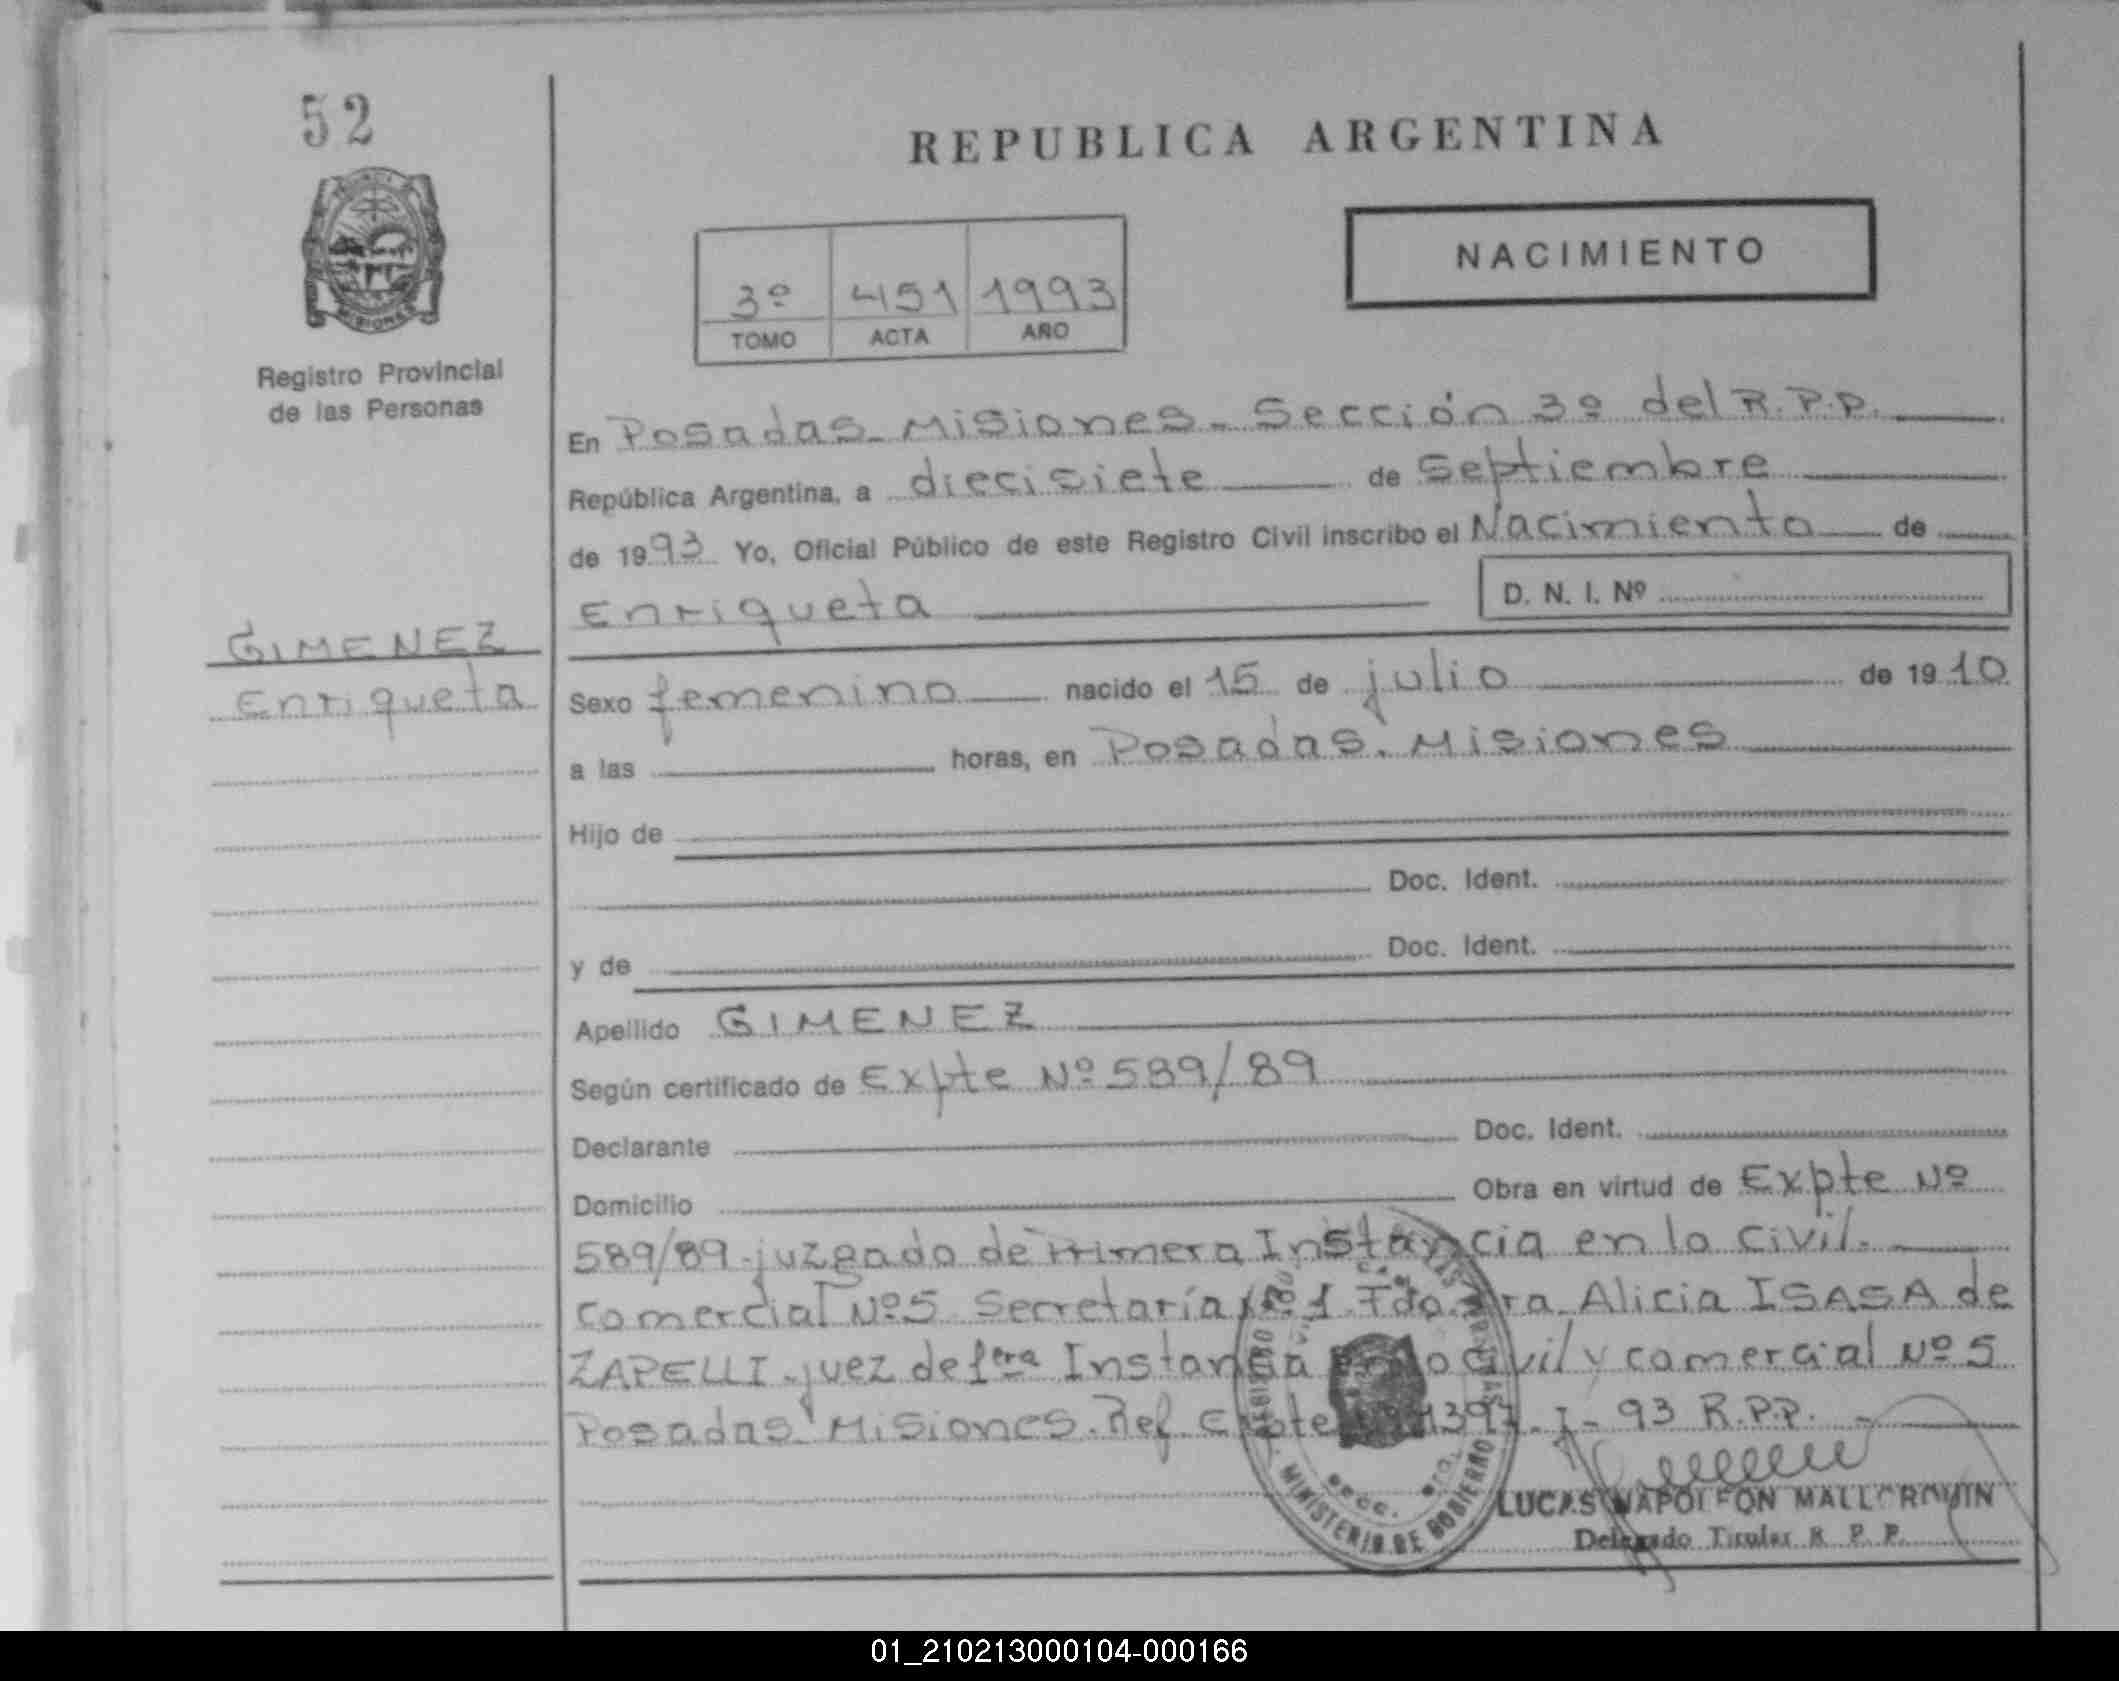 52
REPUBLICA ARGENTINA
NACIMIENTO
3º 451 1993
TOMO ACTA AÑO
MISIONES
Registro Provincial
de las Personas
En Posadas - Misiones - Sección 3º del R.P.P.
República Argentina, a diecisiete de Septiembre
de 1993 Yo, Oficial Público de este Registro Civil inscribo el Nacimiento de
Enriqueta D. N. I. Nº
GIMENEZ
Enriqueta
Sexo femenino nacido el 15 de julio de 1910
a las horas, en Posadas. Misiones
Hijo de
Doc. Ident.
y de Doc. Ident.
Apellido GIMENEZ
Según certificado de Expte Nº 589/89
Declarante Doc. Ident.
Domicilio Obra en virtud de Expte Nº
589/89 - juzgado de Primera Instancia en lo Civil.
comercial Nº5 Secretaría Nº 1 Fdo. Dra Alicia ISASA de
ZAPELLI - juez de 1era Instancia en lo Civil y comercial Nº 5
Posadas Misiones. Ref. Expte 1397-I-93 R.P.P.
MINISTERIO DE GOBIERNO
LUCAS NAPOLEON
Delegado Titular R. P. P.
01_210213000104-000166